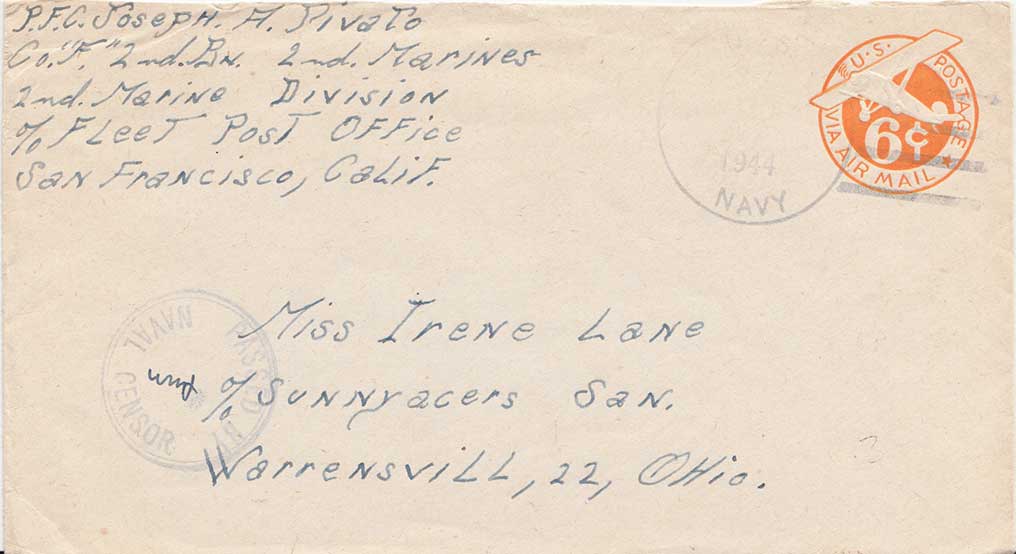 P.F.C. Joseph. A. Pivato
Co. "F." 2nd. Bn. 2nd. Marines
2nd. Marine Division
℅ Fleet Post Office
San Francisco, Calif.
U.S. POSTAGE
VIA AIR MAIL
6¢
1944
NAVY
PASSED BY
NAVAL CENSOR
Miss Irene Lane
℅ Sunnyacers San.
Warrensvill, 22, Ohio.